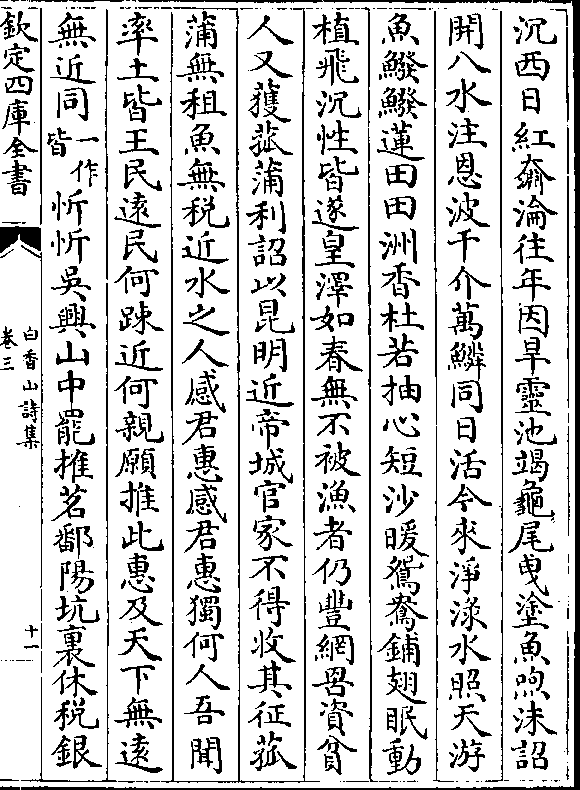 沉西日紅奫淪往年因旱靈池竭龜尾曳塗魚喣沫詔
開八水注恩波千介萬鱗同日活今來淨渌水照天游
魚鱍鱍蓮田田洲香杜若抽心短沙暖鴛鴦鋪翅眠動
植飛沉性皆遂皇澤如春無不被漁者仍豐網罟資貧
人又獲菰蒲利詔以昆明近帝城官家不得收其征菰
蒲無租魚無税近水之人感君惠感君惠獨何人吾聞
率土皆王民逺民何踈近何親願推此惠及天下無逺
無近同一作皆忻忻吳興山中罷推茗鄱陽坑裏休税銀
欽定四庫全書
白香山詩集
卷三
十一